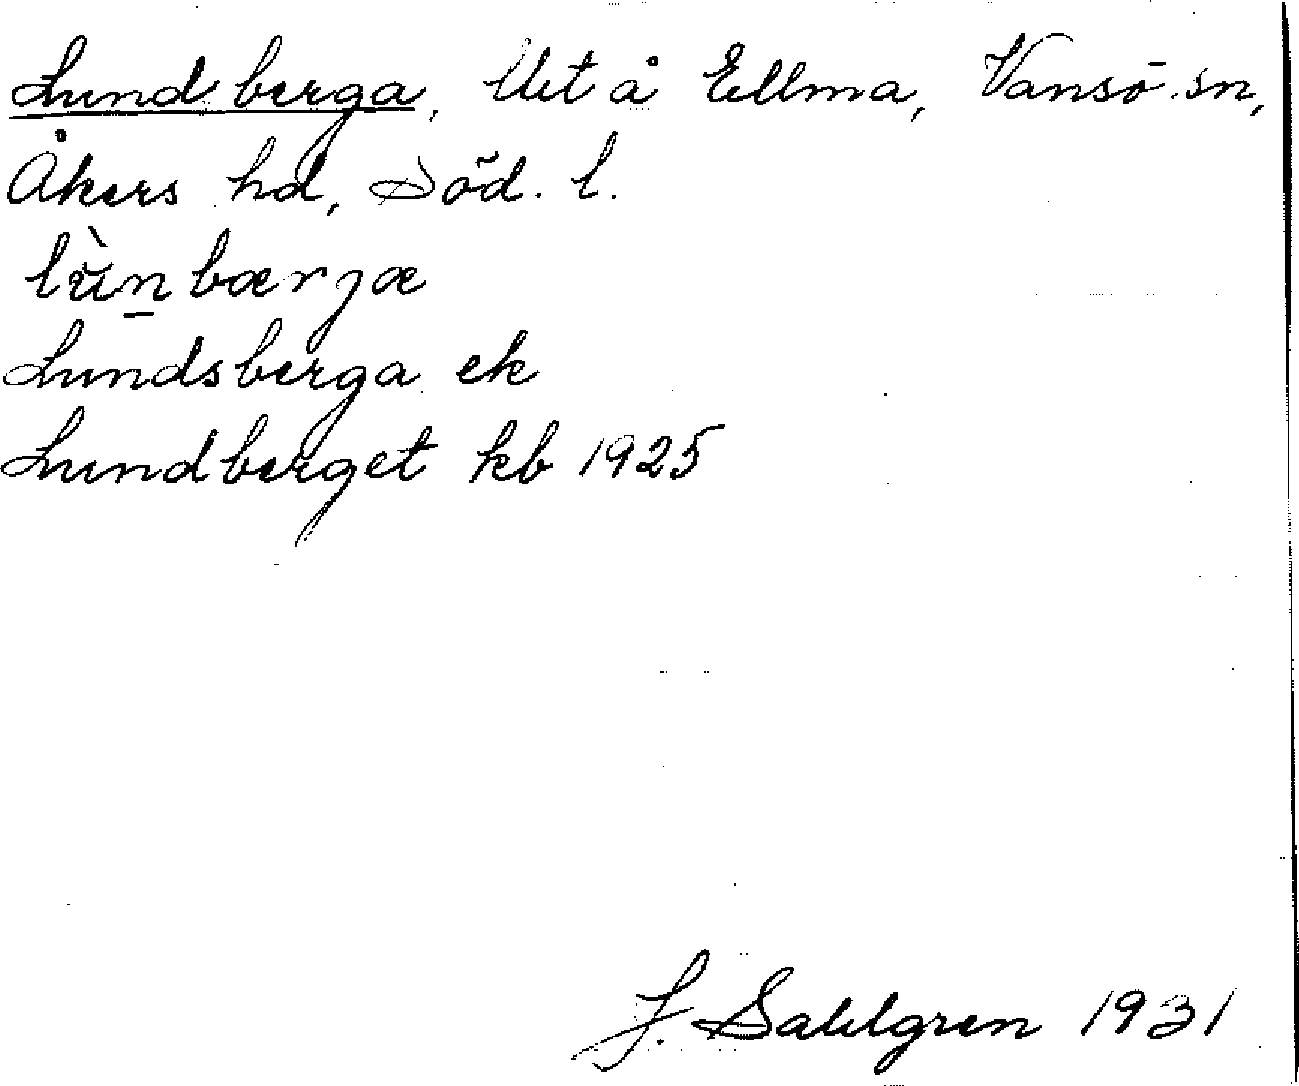 Lundberga, Ut å Ellma, Vansö sn,
Åkers hd, Söd. l.
lùn̠bærjæ
Lundsberga ek
Lundberget kb 1925
J. Sahlgren 1931